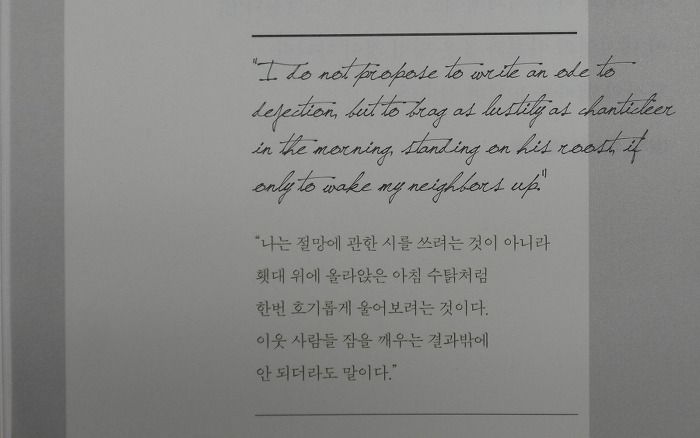 "I do not propose to write an ode to
dejection, but to brag as lustily as chanticleer
in the morning, standing on his roost, if
only to wake my neighbors up."
“나는 절망에 관한 시를 쓰려는 것이 아니라
횃대 위에 올라앉은 아침 수탉처럼
한번 호기롭게 울어보려는 것이다.
이웃 사람들 잠을 깨우는 결과밖에
안 되더라도 말이다.”